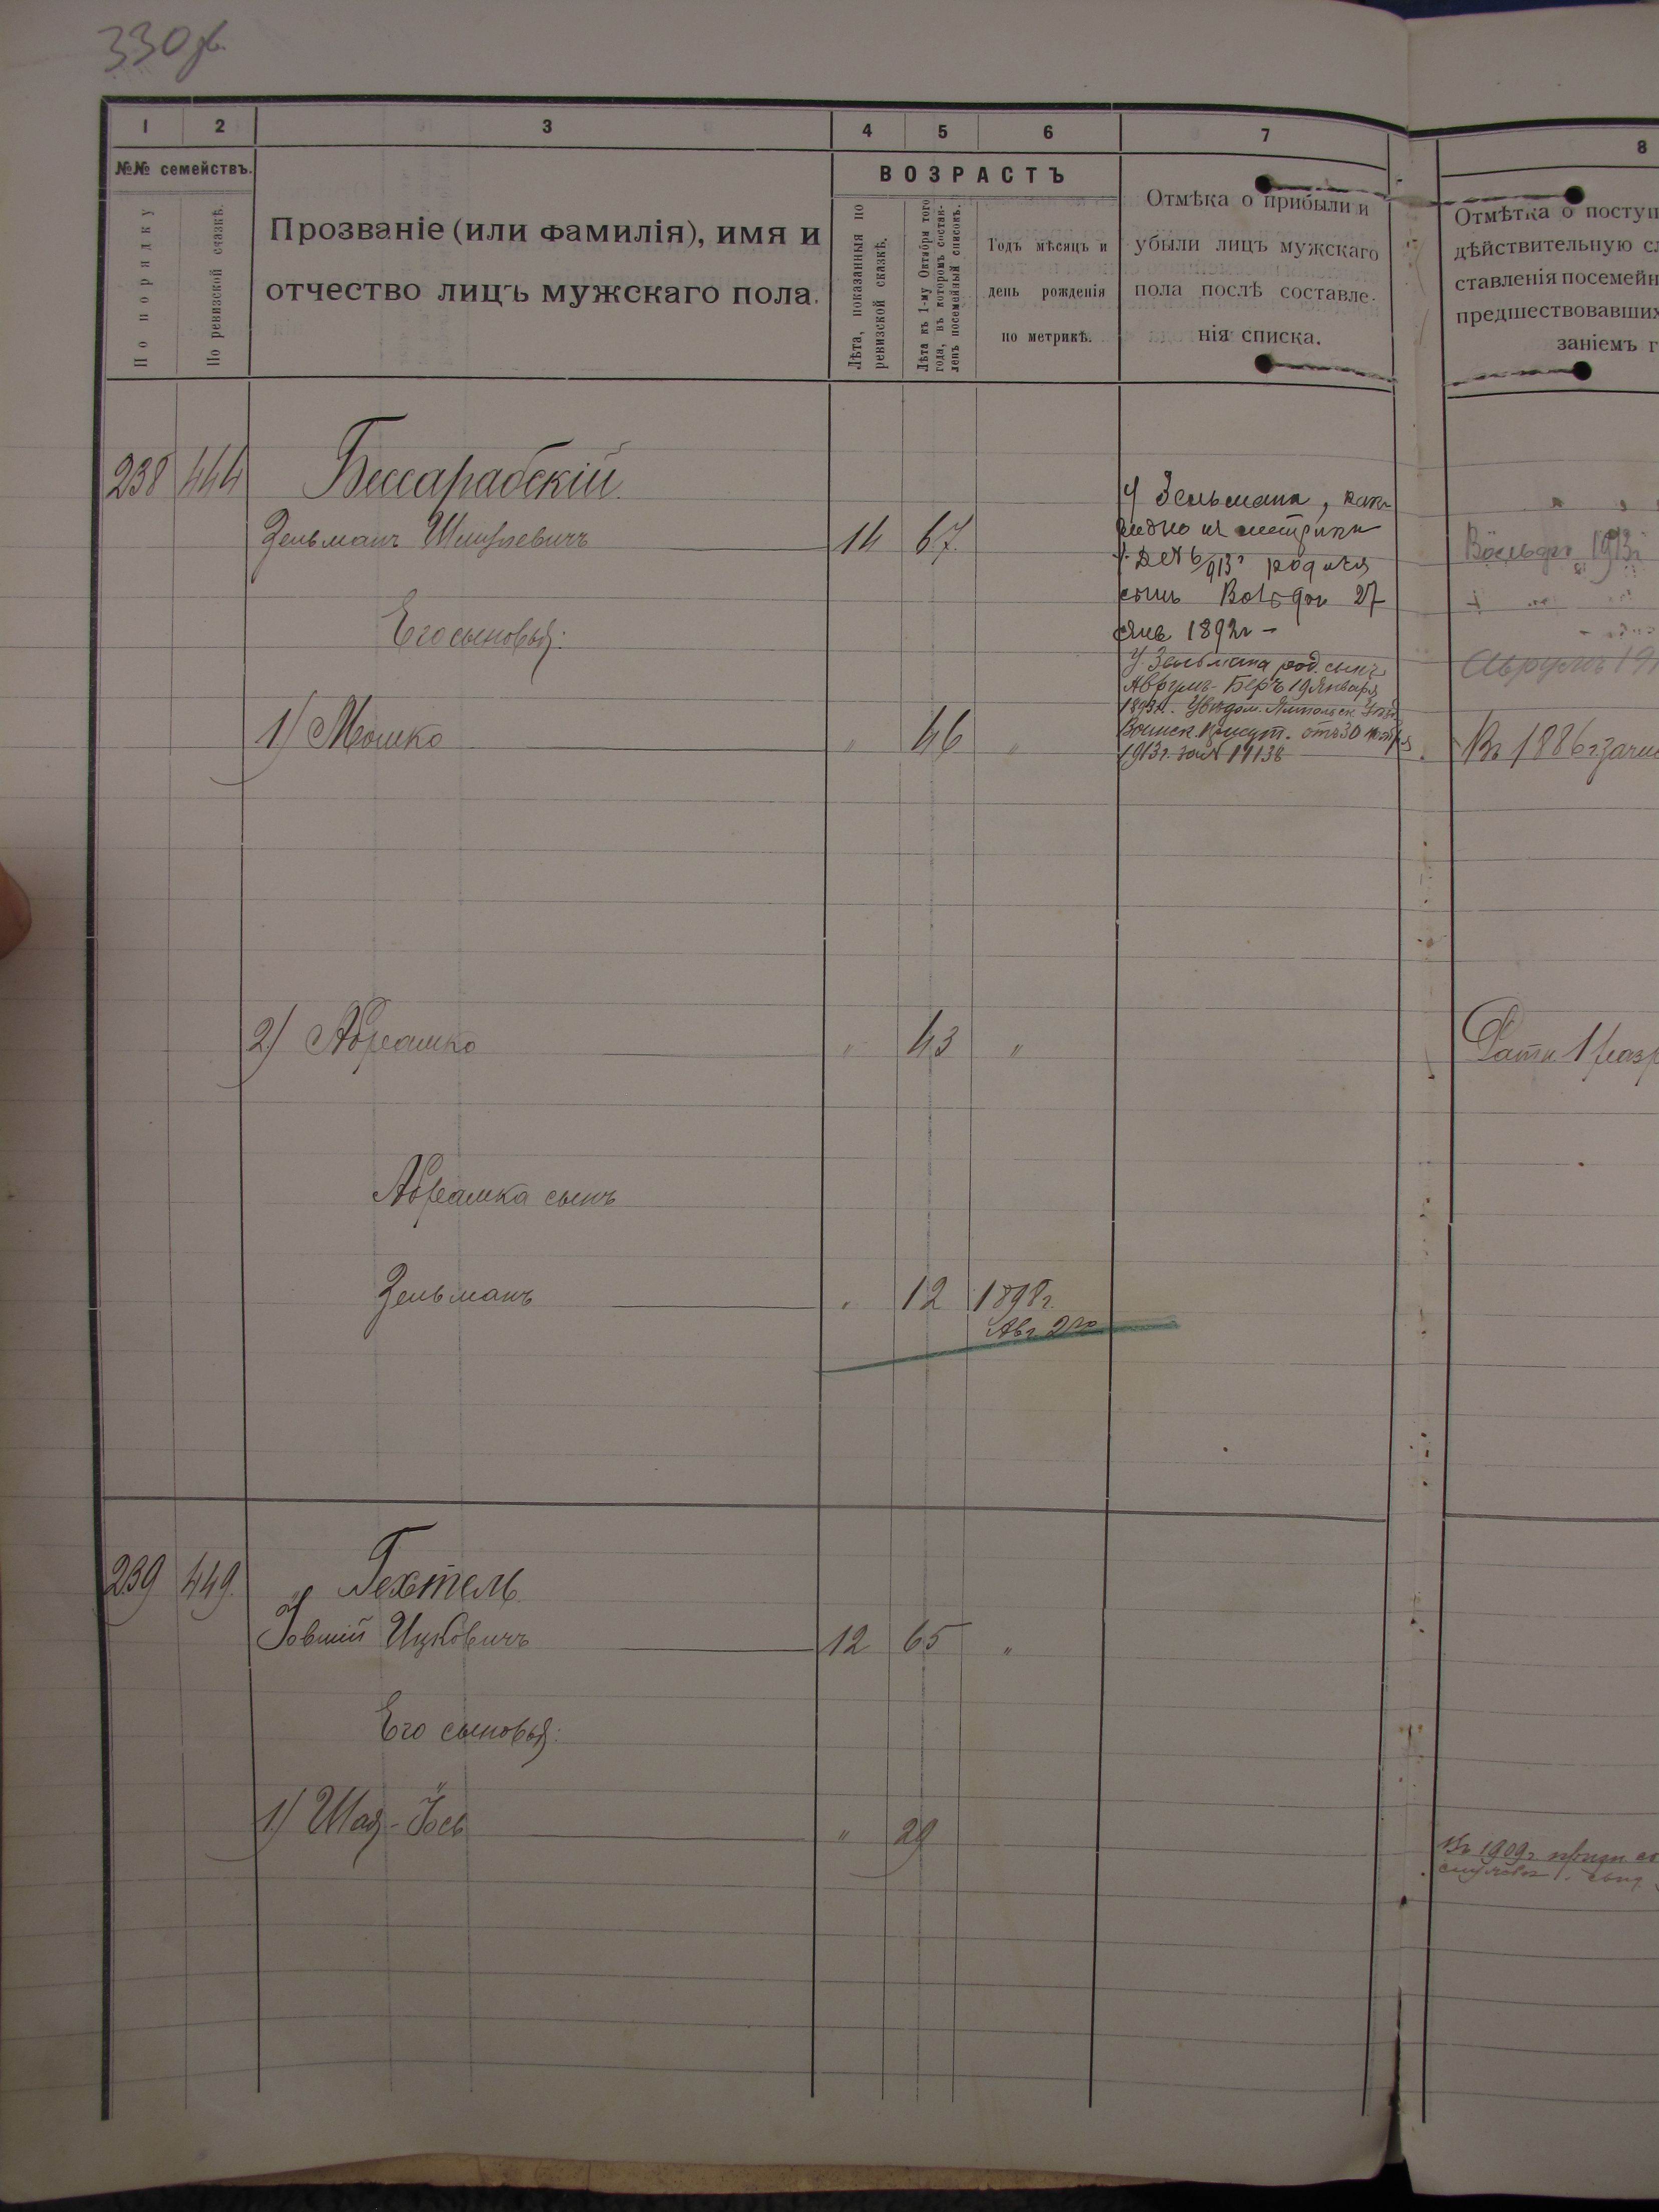 330об.
1 2 3 4 5 6 7 8
№№ семействъ.
По порядку
По ревизской сказкѣ.
Прозваніе (или фамилія), имя и
отчество лицъ мужскаго пола.
ВОЗРАСТЪ
Лѣта, показанныя по
ревизской сказкѣ.
Лѣта къ 1-му Октября того
года, въ которомъ состав-
ленъ посемейный списокъ.
Годъ мѣсяцъ и
день рожденія
по метрикѣ.
Отмѣка о прибыли и
убыли лицъ мужскаго
пола послѣ составле-
нія списка.
Отмѣтка о поступ
дѣйствительную сл
ставленія посемейн
предшествовавших
заніемъ г
238 444 Бессарабскій.
Зельманъ Шмулевичъ 14 67.
Его сыновья:
1) Мошко " 46 "
У Зельмана, какъ
видно из метрики
1913г родился
сынъ Вольфъ 27
Янв 1892г -
У Зельмана род. сынъ
Аврумъ-Беръ 19 Января
189 г. Увѣдом. Ямпольск. Уѣзд.
Воинск. Присут. отъ 30
1913г. за № 11138
Вольфъ 1913г
Аврумъ 191
Въ 1886г зачис
2) Абрамко " 43 "
Рати. 1 разр
Абрамка сынъ
Зельманъ " 12 1898г.
Авг. 2го
239 449. Гехтель
Іовший Ицковичъ 12 65 "
Его сыновья:
1) Шая-Іось " 29
Въ 1909г.